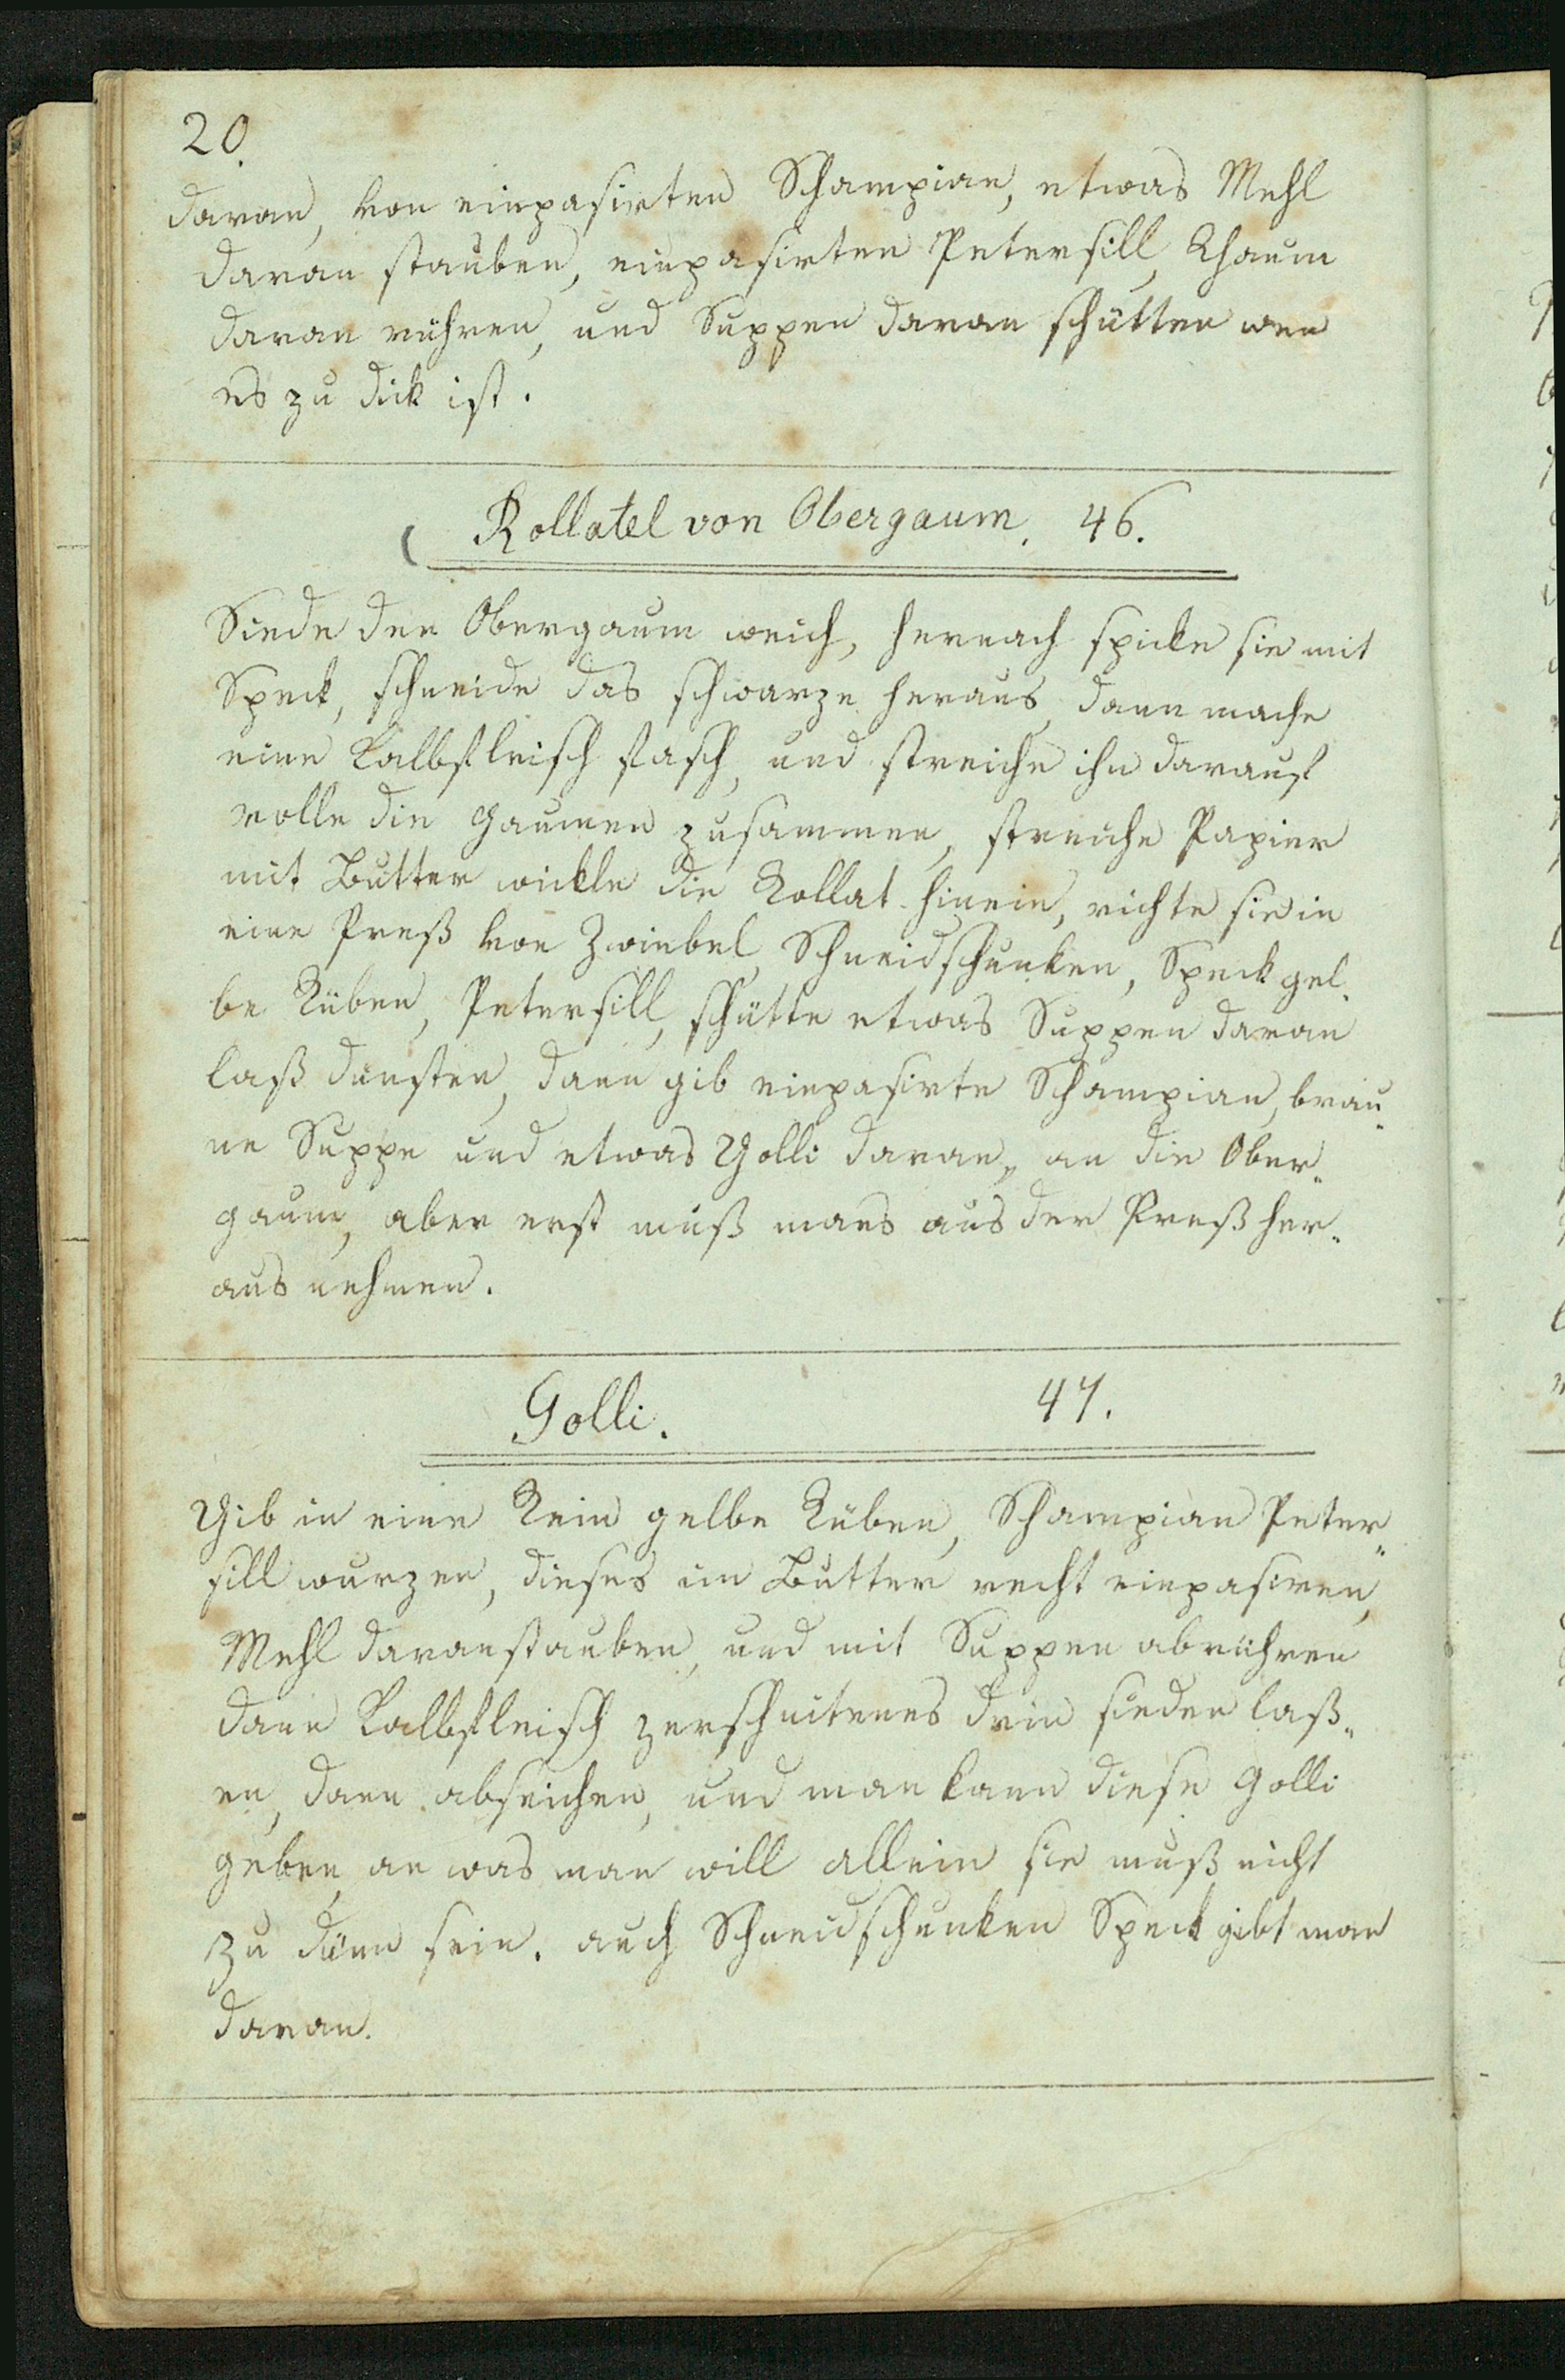 20.
daran, von einpasirten Schampian, etwas Mehl
daran stauben, einpasirten Petersill, Rhaum
daran rühren, und Suppen daran schütten wen
es zu dick ist.
Rollatel von Obergaum. 46.
Siede den Obergaum weich, hernach spicke sie mit
Speck, schneide das schwarze heraus, dann mache
eine Kalbfleisch fasch, und streiche ihn darauf
rolle die Gaumen zusammen, streiche Papier
mit Butter wickle die Rollat hinein, richte sie in
eine Preß von Zwiebel, Schneidschunken, Speck gel-
be Rüben, Petersill, schütte etwas Suppen daran
laß dunsten, dann gib einpasirte Schampian, brau-
ne Suppe und etwas Golli daran, an die Ober-
gaum, aber erst muß mans aus der Preß her-
aus nehmen.
Golli. 47.
Gib in eine Rein gelbe Rüben, Schampian Peter-
sill wurzen, dieses im Butter recht einpasiren,
Mehl daranstauben, und mit Suppen abrühren
dann Kalbfleisch zerschnitenes drin sieden laß-
en, dann abseichen, und man kann diese Golli
geben an was man will allein sie muß nicht
zu dünn sein. auch Schneidschunken Speck gibt man
daran.